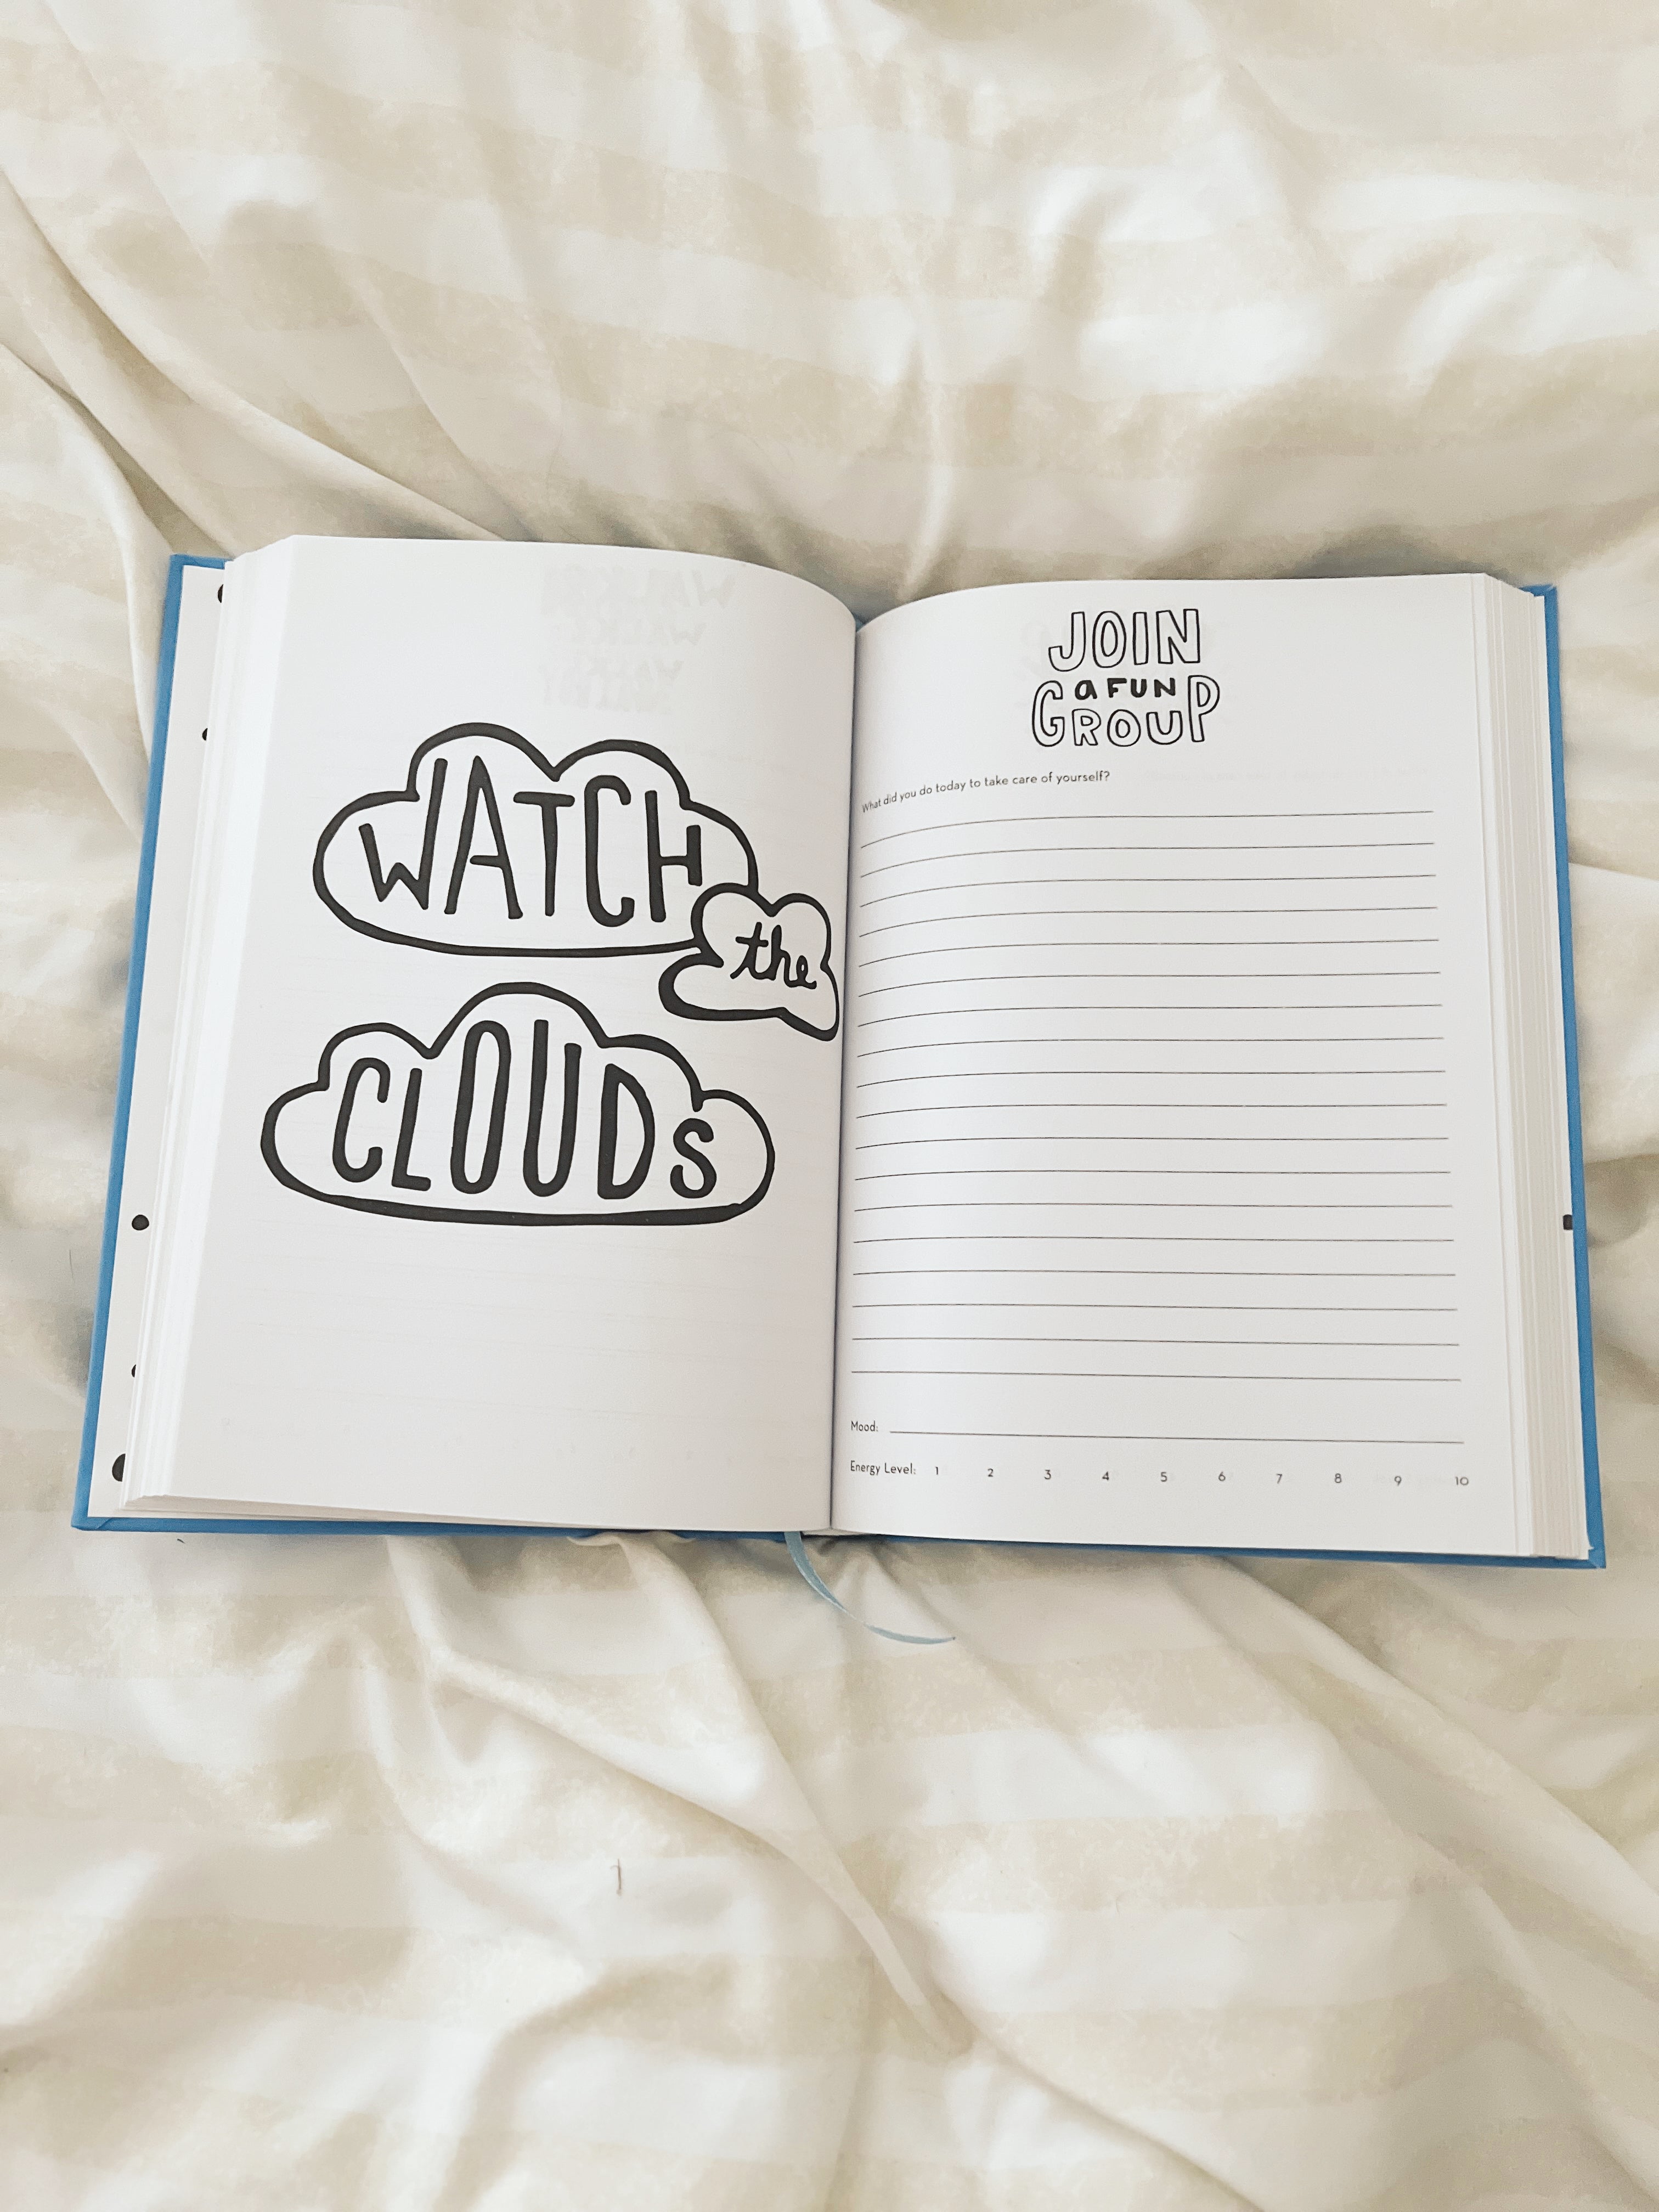 WATCH
the
CLOUDS
JOIN
a FUN
GROUP
What did you do today to take care of yourself?
Mood:
Energy Level: 1 2 3 4 5 6 7 8 9 10